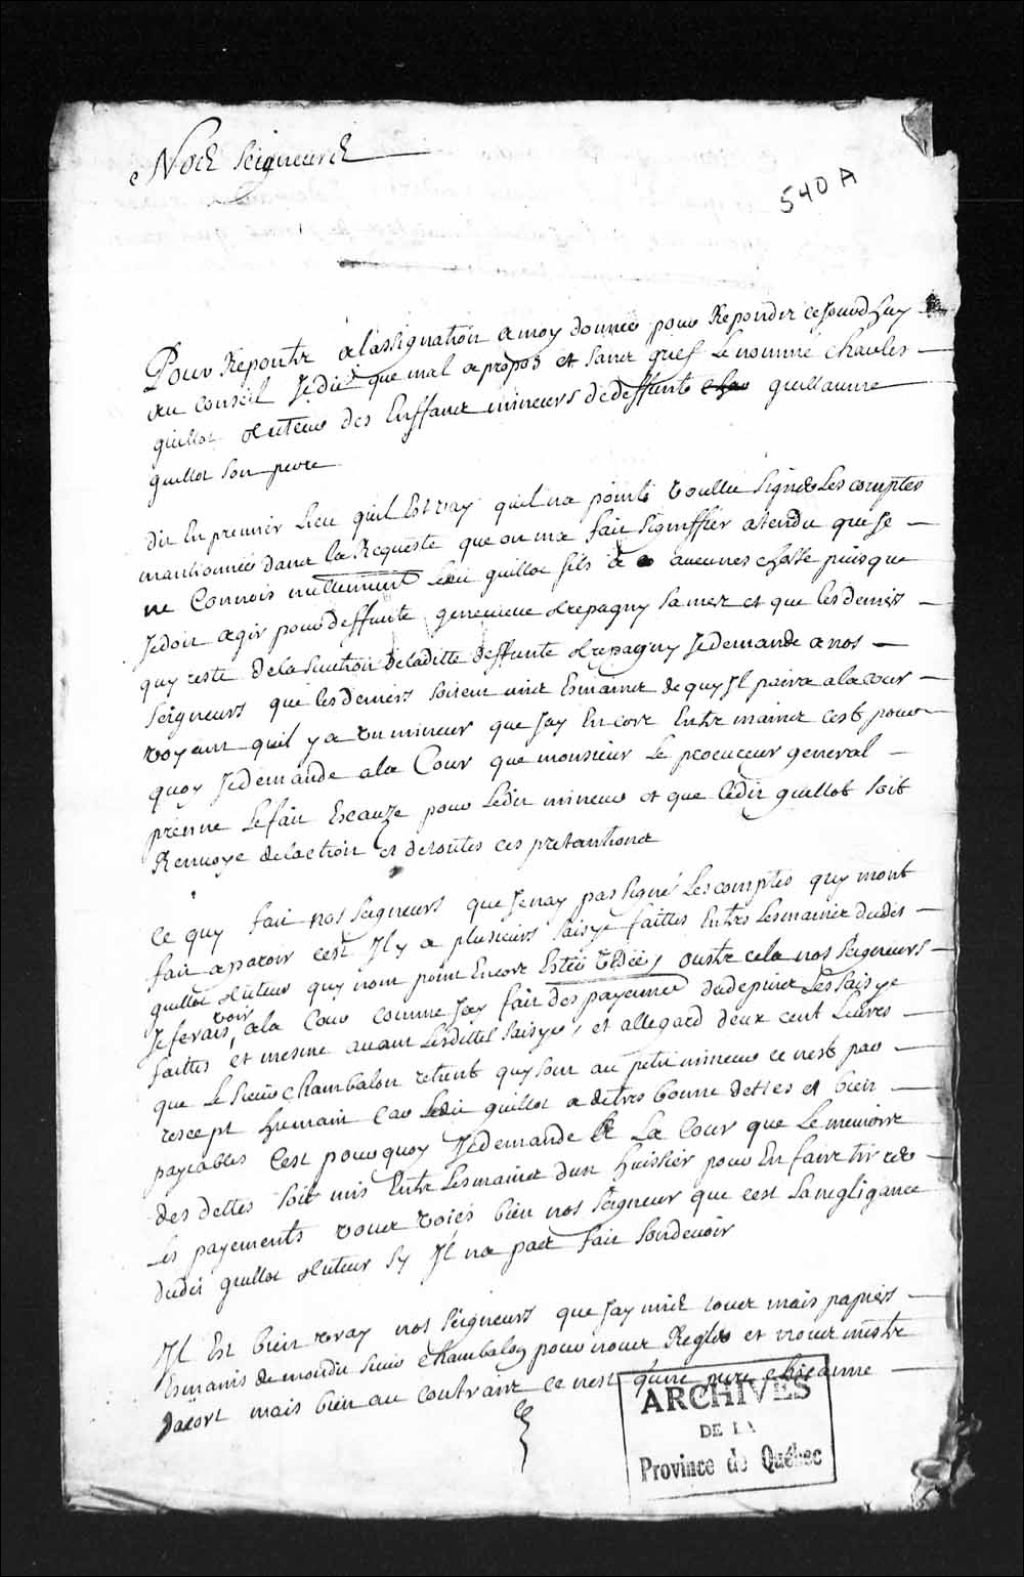 Nos Seigneurs
540 A
Pour Repontre a lassignation a moy donnee pour Reponder ce Jourdhuy
au conseil Je dis que mal apropos et sans grief le nommé Charles
guillot tuteur des Enffans mineurs de deffunte guillaume
guillot son pere
dit En premier lieu quil Est vray quil na points voullu signer Les comptes
mantionnée dans la Requeste que on ma fait signiffier atendu que Je
ne Connois nullement ledit guillot fils a aucunes chosse puis que
Je dois agir pour deffunte genevieve trepagny sa mere et que les deniers
quy reste de la suction de laditte deffunte trepagny Je demande a nos
seigneurs que les deniers soisent mis Es mains de quy Jl paira a la cour
voyant quil y a un mineur que Jay Encore Entre mains cest pour
quoy Je demande a la Cour que monsieur Le procureur general
prenne Le fait Escauze pour Ledit mineur et que ledit guillot soit
Renvoye de laction et de toutes ces pretantions
Ce quy fait nos seigneurs que Je nay pas signé Les comptes quy mont
fait aparoir cest Jl y a plusieurs saisye faittes Entres Les mains dudit
guillot tuteur quy nont point Encore Estée vidée, oustre cela nos seigneurs
Je ferais voir a la Cour comme Jay fait des payemens dudepuis Les saisye
faittes et mesme avant Lesdittes saisye, et allegard deux cent Livres
que Le sieur Chambalon retient quy sont au petit mineur ce nest pas
rescept humain Car Ledit guillot a detres bonne dettes et bien
payeables Cest pourquoy Je demande a La Cour que Le memoire
des dettes soit mis Entre Les mains dun huissier pour En faire tirer
Les payements vous voiés bien nos seigneur que cest La negligance
dudit guillot tuteur sy Jl na pas fait son devoir
Jl Est bien vray nos seigneurs que Jay mis tous mais papiers
Es mains de mondit sieur Chambalon pour nous Regler et nous mestre
dacort mais bien au contraire ce nest quune pure chicanne
ARCHIVES
DE LA
Province de Québec